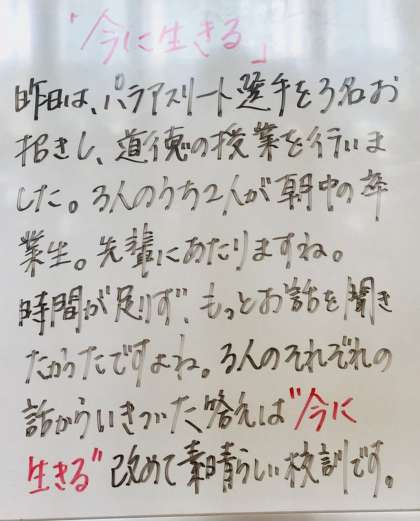 「今に生きる」
昨日は、パラアスリート選手を3名お
招きし、道徳の授業を行いま
した。3人のうち2人が朝中の卒
業生。先輩にあたりますね。
時間が足りず、もっとお話を聞き
たかったですよね。3人のそれぞれの
話からいきついた答えは"今に
生きる"改めて素晴らしい校訓です。